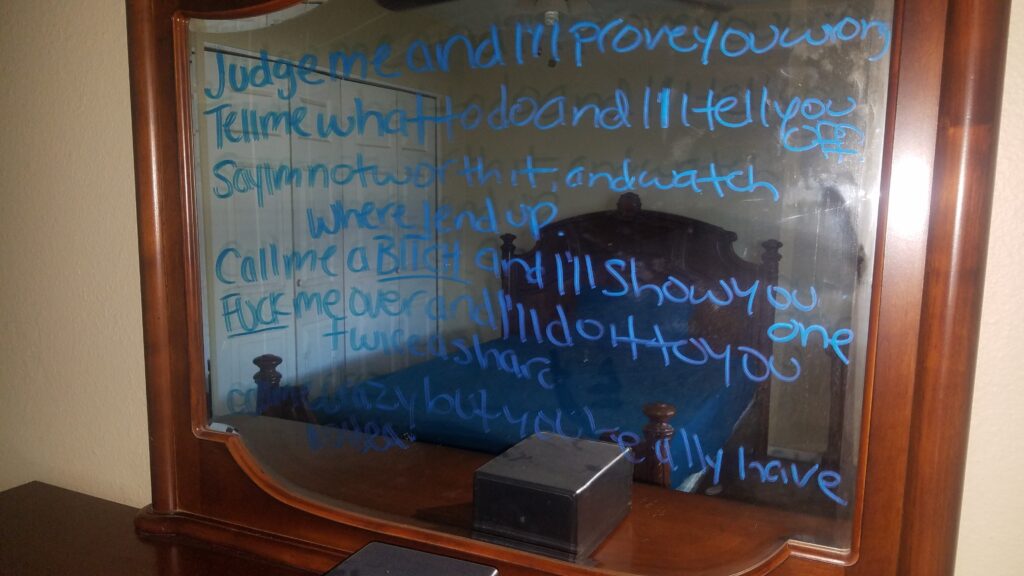 Judge me and I'll prove you wrong
Tell me what to do and I'll tell you
off
Say Im not worth it, and watch
where I end up.
Call me a BITCH and I'll show you
one
Fuck me over and I'll do it to you
twice as hard
call me crazy but you really have